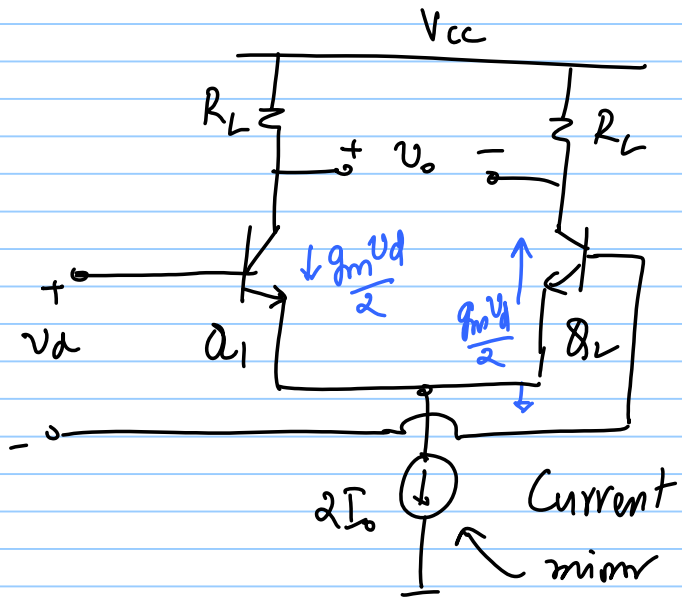 Vcc
RL
+ vo −
RL
↓ gm vd/2
gm vd/2
+
vd
Q1
Q2
−
2Io
Current
mirror